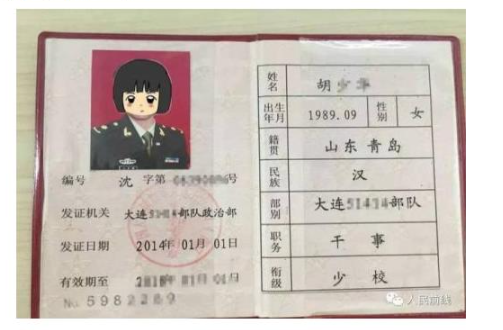 编号 沈 字第 号
发证机关 大连 部队政治部
发证日期 2014年 01月 01日
有效期至 01日
No. 5982
姓名 胡
出生年月 1989.09 性别 女
籍贯 山东 青岛
民族 汉
部别 大连 部队
职务 干 事
衔级 少 校
人民前线